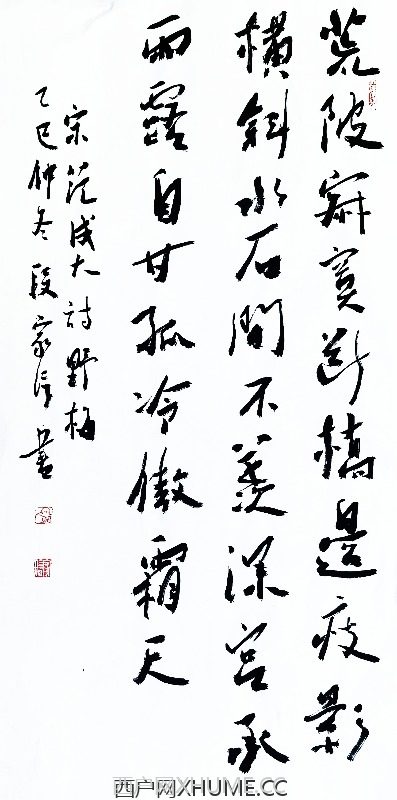 荒陂寂寞斷橋邊疏影
橫斜水石間不羨深宮承
雨露自甘孤冷傲霜天
宋范成大詩野梅
乙巳仲冬段家書
西户网XHUME.CC